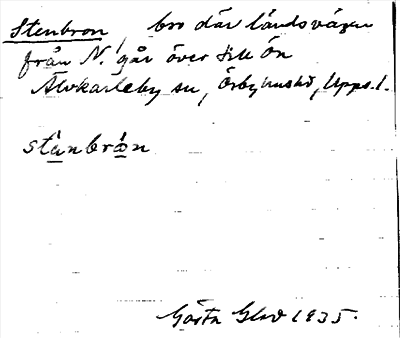 Stenbron, bro där landsvägen
från N. går över till Ön
Älvkarleby sn, Örbyhus hd, Upps. l.
stänbrǻn
Gösta Glad 1935.